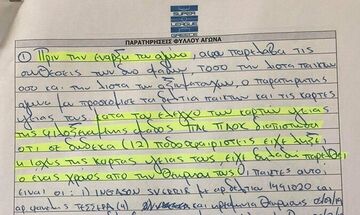 SUPER
LEAGUE
GREECE
ΠΑΡΑΤΗΡΗΣΕΙΣ ΦΥΛΛΟΥ ΑΓΩΝΑ
① Πριν την έναρξη του αγώνα, αφού παρέλαβα τις
συνθέσεις των δύο ομάδων, τόσο την λίστα παικτών
όσο και την λίστα των αξιωματούχων, ο παρατηρητής
αγώνα μου προσκόμισε τα δελτία παικτών και τις κάρτες
υγείας τους. Κατά τον έλεγχο των καρτών υγείας
της φιλοξενούμενης ομάδας ΠΑΕ ΠΑΟΚ διαπίστωσα
ότι σε δώδεκα (12) ποδοσφαιριστές είχε λήξει
η ισχύς της κάρτας υγείας τους, είχε δηλαδή παρέλθει
ο ένας χρόνος από την θεώρηση τους. Παίκτες αυτοί
είναι οι: 1) INGASON SVERRIR με αρ. δελτίου 1491020 και